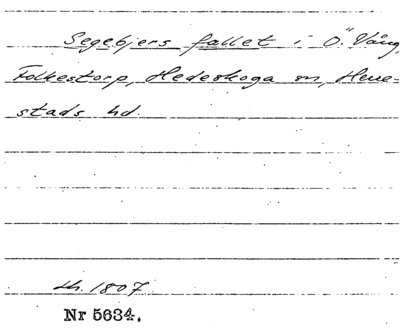 Segebjers fallet i Ö. Vång,
Folkestorp, Hedeskoga sn, Herre-
stads hd.
sh. 1807
Nr 5634.